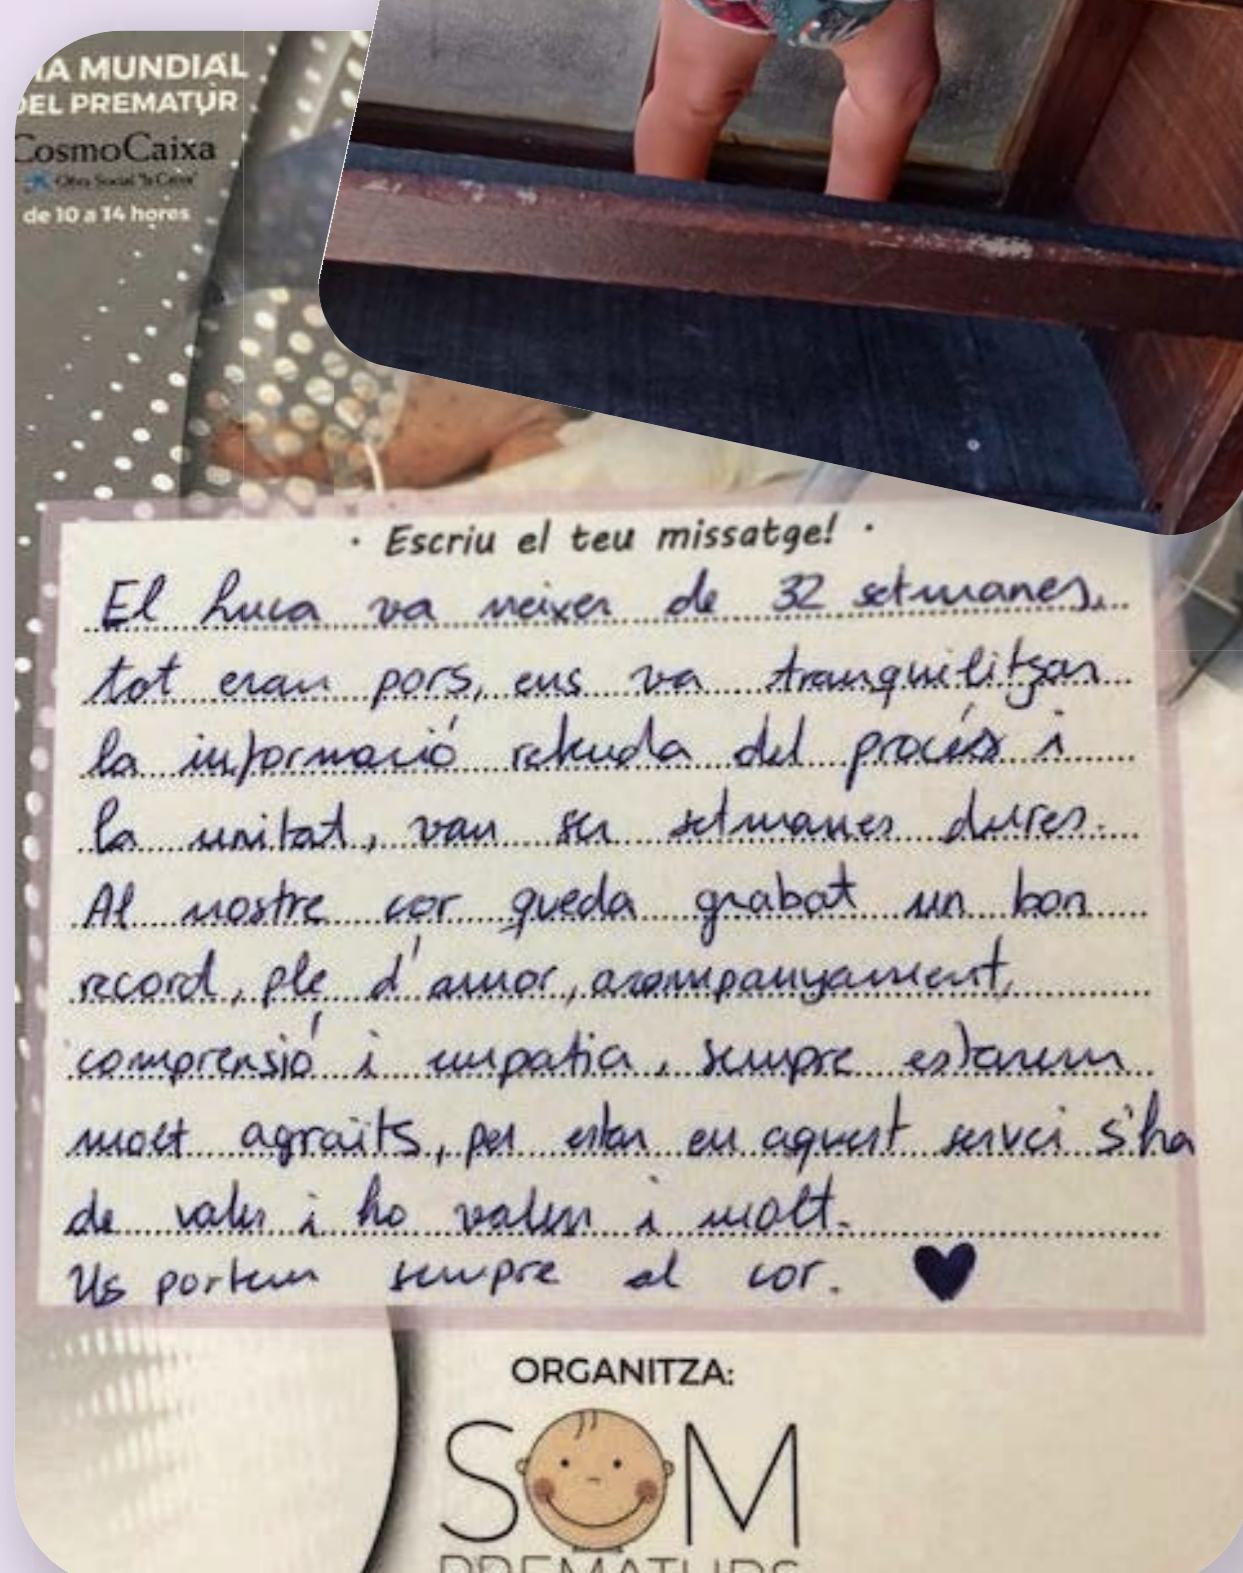 IA MUNDIAL
DEL PREMATUR
CosmoCaixa
Obra Social "la Caixa"
de 10 a 14 hores
· Escriu el teu missatge! ·
El Luca va neixer de 32 setmanes,
tot eran pors, ens va tranquilitzar
la informació rebuda del procés i
la unitat, van ser setmanes dures.
Al nostre cor queda grabat un bon
record, ple d'amor, acompanyament,
comprensió i empatia, sempre estarem
molt agraïts, per estar en aquest servei s'ha
de valer i ho valeu i molt.
Us portem sempre al cor.
ORGANITZA:
SOM
PREMATURS